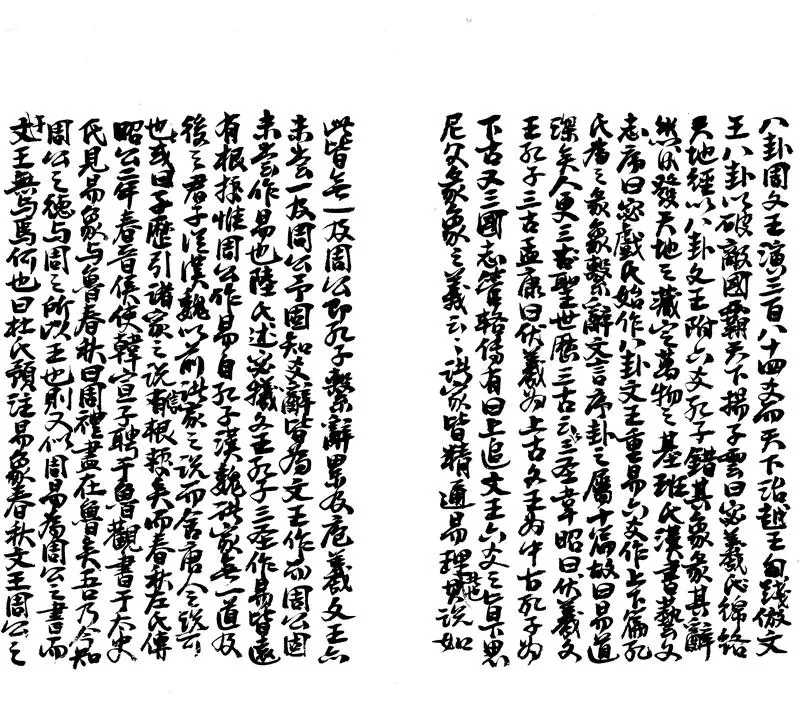 八卦周文王演三百八十四爻而天下治越王句踐倣文
王八卦以破敵國霸天下揚子雲曰宓羲氏綿絡
天地經以八卦文王附六爻孔子錯其象彖其辭
然后發天地之藏定萬物之基班氏漢書藝文
志序曰宓戲氏始作八卦文王重易六爻作上下篇孔
氏為之彖象繫辭文言序卦之屬十篇故曰易道
深矣人更三聖世歷三古云云韋昭曰伏羲文
王孔子三古孟康曰伏羲為上古文王為中古孔子為
下古又三國志管輅傳有曰上追文王六爻之旨下思
尼父彖象之義云云諸家皆精通易理其說如
此皆無一及周公即孔子繫辭累及庖羲文王亦
未嘗一及周公予固知爻辭皆為文王作而周公固
未嘗作易也陸氏述宓犧文王孔子三聖作易皆遠
有根據惟周公作易自孔子漢魏諸家無一道及
後之君子從漢魏以前諸家之說而舍唐人之說可
也或曰子歷引諸家之說信有根據矣而春秋左氏傳
昭公二年春晉侯使韓宣子聘于魯觀書于太史
氏見易象與魯春秋曰周禮盡在魯矣吾乃今知
周公之德与周之所以王也則又似周易為周公之書而
于文王無与焉何也曰杜氏預注易象春秋文王周公之